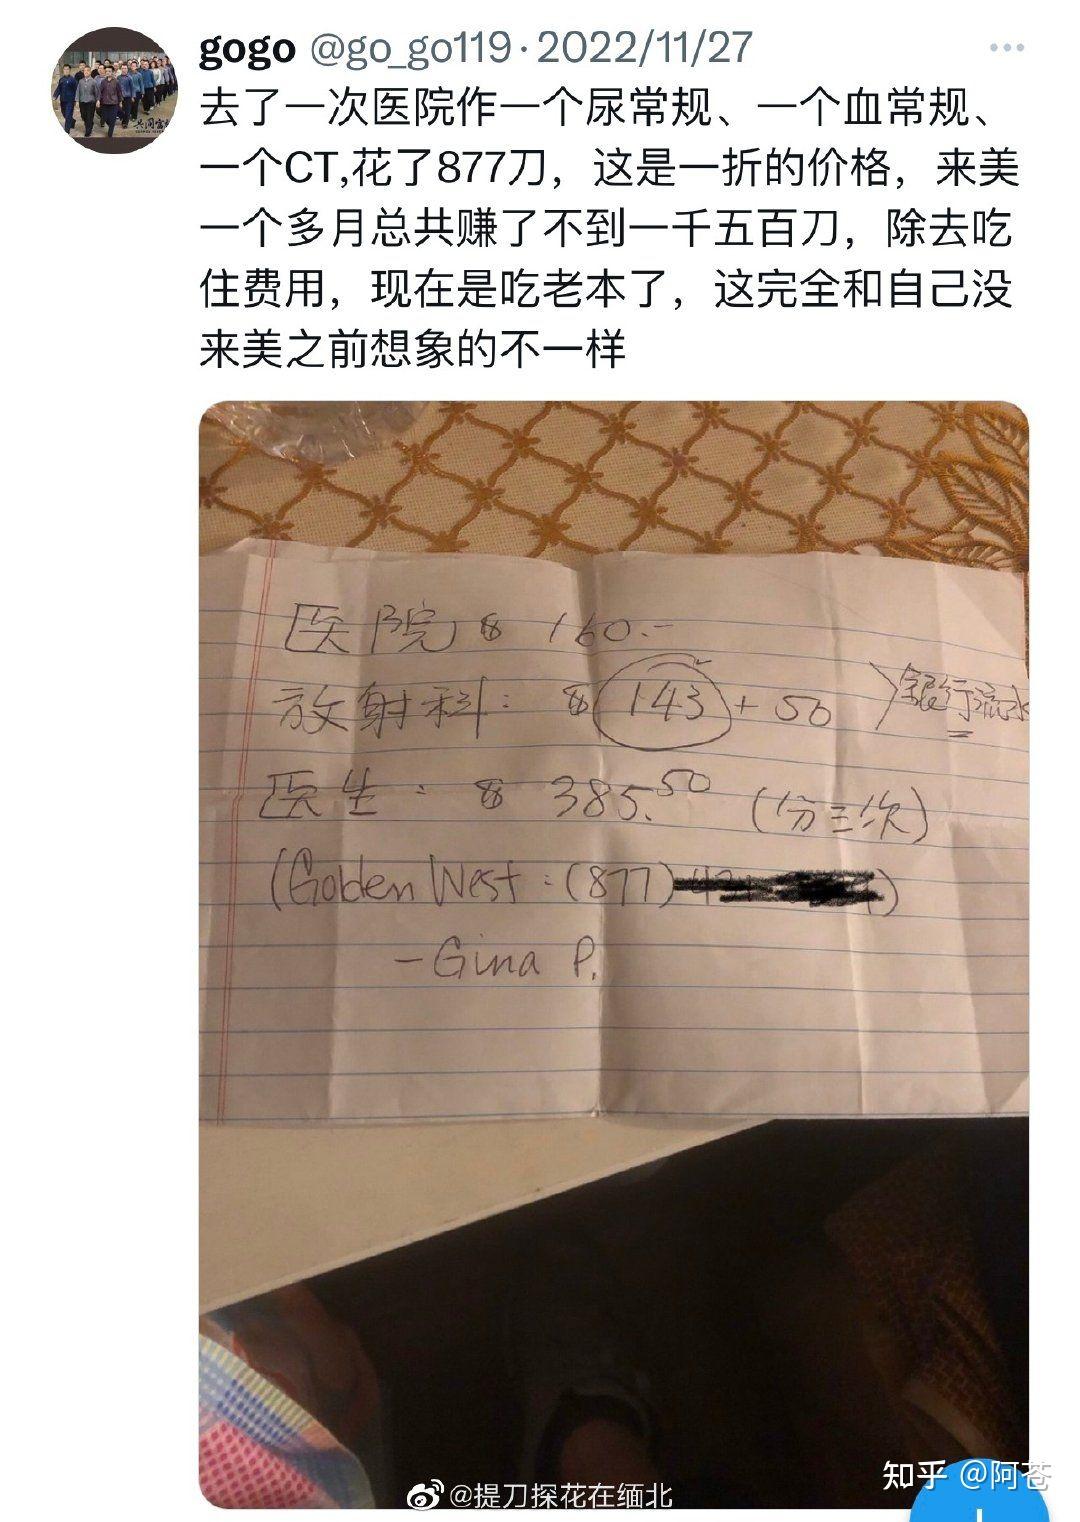 gogo @go_go119·2022/11/27
去了一次医院作一个尿常规、一个血常规、
一个CT,花了877刀，这是一折的价格，来美
一个多月总共赚了不到一千五百刀，除去吃
住费用，现在是吃老本了，这完全和自己没
来美之前想象的不一样
医院 $ 160.-
放射科: $ 143 + 50 〉银行流水
医生: $ 385.50 (分三次)
(Golden West: (877)
-Gina P.
@提刀探花在缅北
知乎 @阿苍